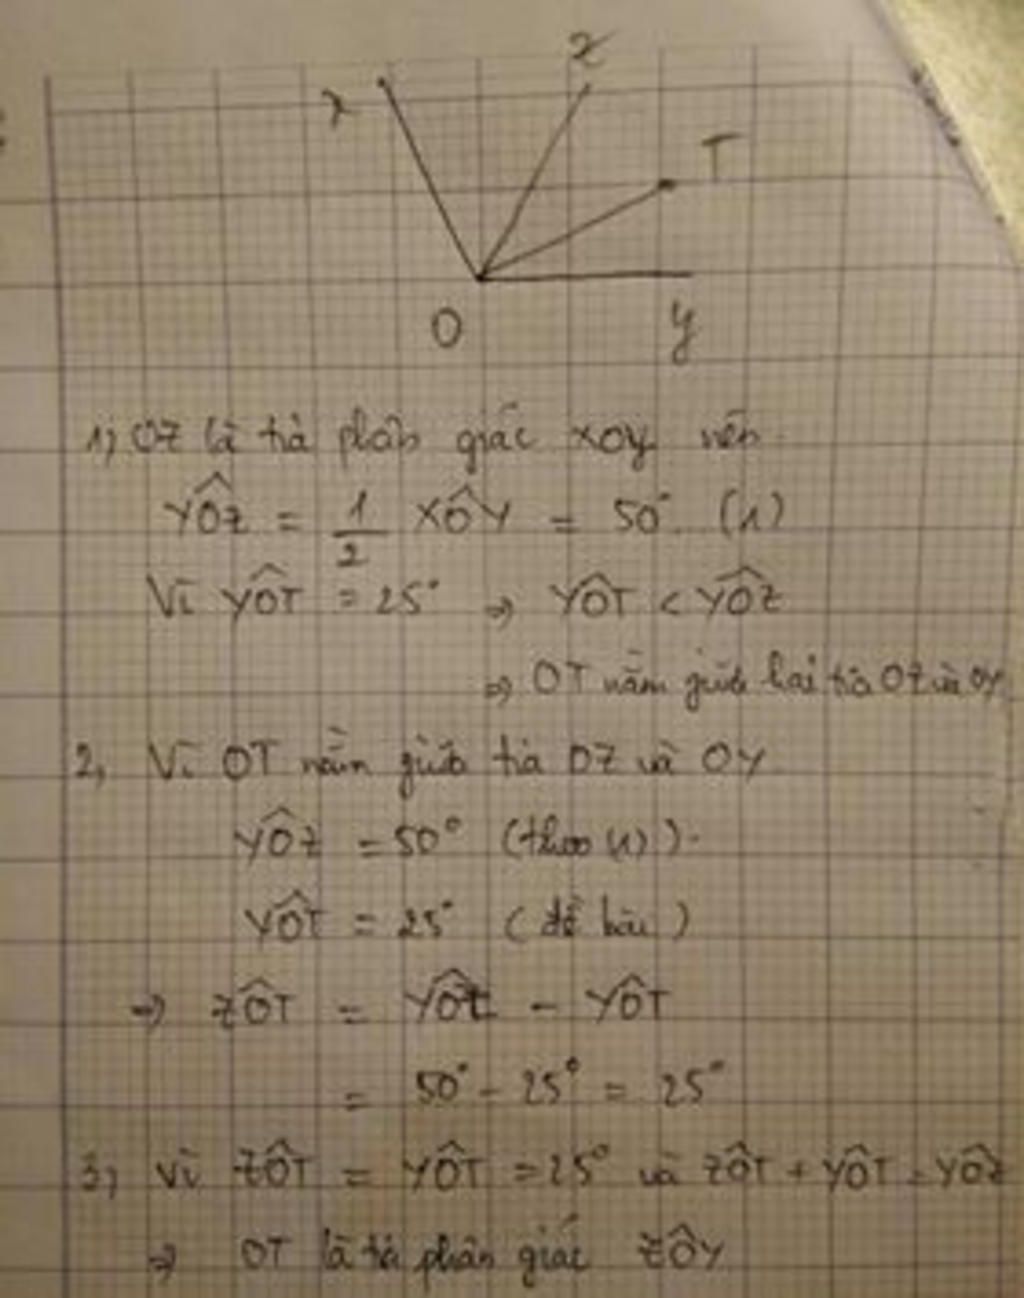 x
z
T
O
y
1) OZ là tia phân giác xOy nên
YÔZ = 1/2 XÔY = 50° (1)
Vì YÔT = 25° => YÔT < YÔZ
=> OT nằm giữa hai tia OZ và OY
2, Vì OT nằm giữa tia OZ và OY
YÔZ = 50° (theo (1)).
YÔT = 25° (đề bài)
=> ZÔT = YÔZ - YÔT
= 50° - 25° = 25°
3, Vì ZÔT = YÔT = 25° và ZÔT + YÔT = YÔZ
=> OT là tia phân giác ZÔY